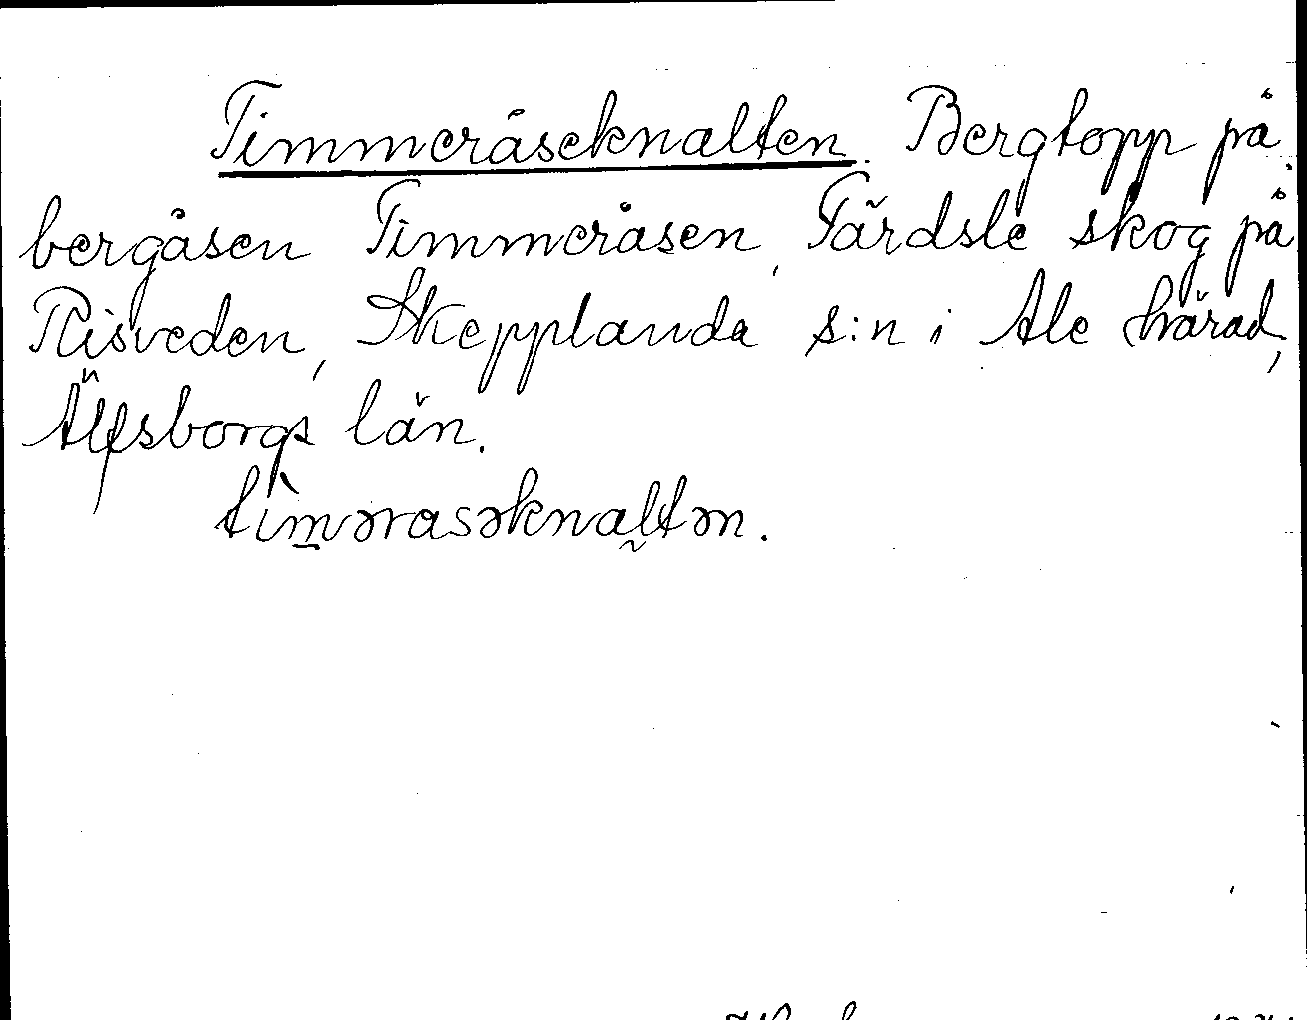 Timmeråseknalten. Bergtopp på
bergåsen Timmeråsen, Färdsle skog på
Risveden, Skepplanda s:n i Ale härad,
Älfsborgs län.
tìmərasəknaltən.